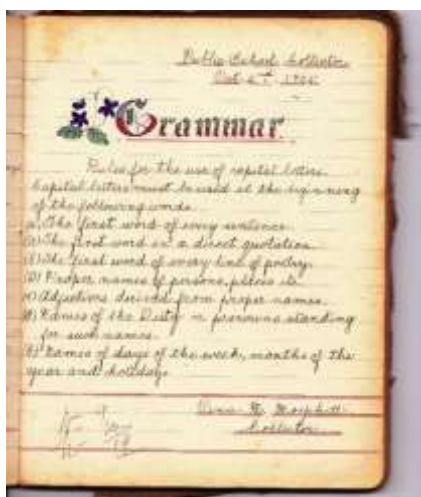 Public School Collector
Oct 6th 1905
Grammar
Rules for the use of capital letters.
Capital letters must be used at the beginning
of the following words.
The first word of every sentence.
The first word in a direct quotation.
The first word of every line of poetry.
(D) Proper names of persons, places etc.
Adjectives derived from proper names.
Names of the Deity or pronouns standing
for such names.
Names of days of the week, months of the
year and holidays